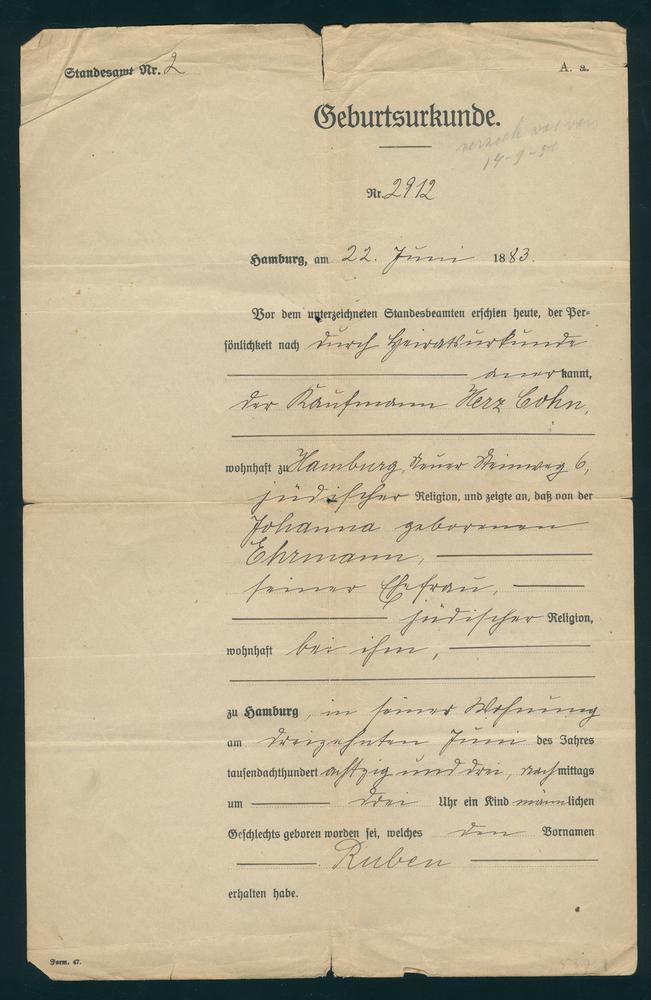 Standesamt Nr. 2
A. a.
Geburtsurkunde.
14-9-
Nr. 2912
Hamburg, am 22. Juni 1883.
Vor dem unterzeichneten Standesbeamten erschien heute, der Per=
sönlichkeit nach durch Heiratsurkunde
anerkannt,
der Kaufmann Herz Cohn,
wohnhaft zu Hamburg, Neuer Steinweg 6,
jüdischer Religion, und zeigte an, daß von der
Johanna geborenen
Ehrmann,
seiner Ehefrau,
jüdischer Religion,
wohnhaft bei ihm,
zu Hamburg, in seiner Wohnung
am dreizehnten Juni des Jahres
tausendachthundert achtzig und drei, nachmittags
um drei Uhr ein Kind männlichen
Geschlechts geboren worden sei, welches den Vornamen
Ruben
erhalten habe.
Form. 47.